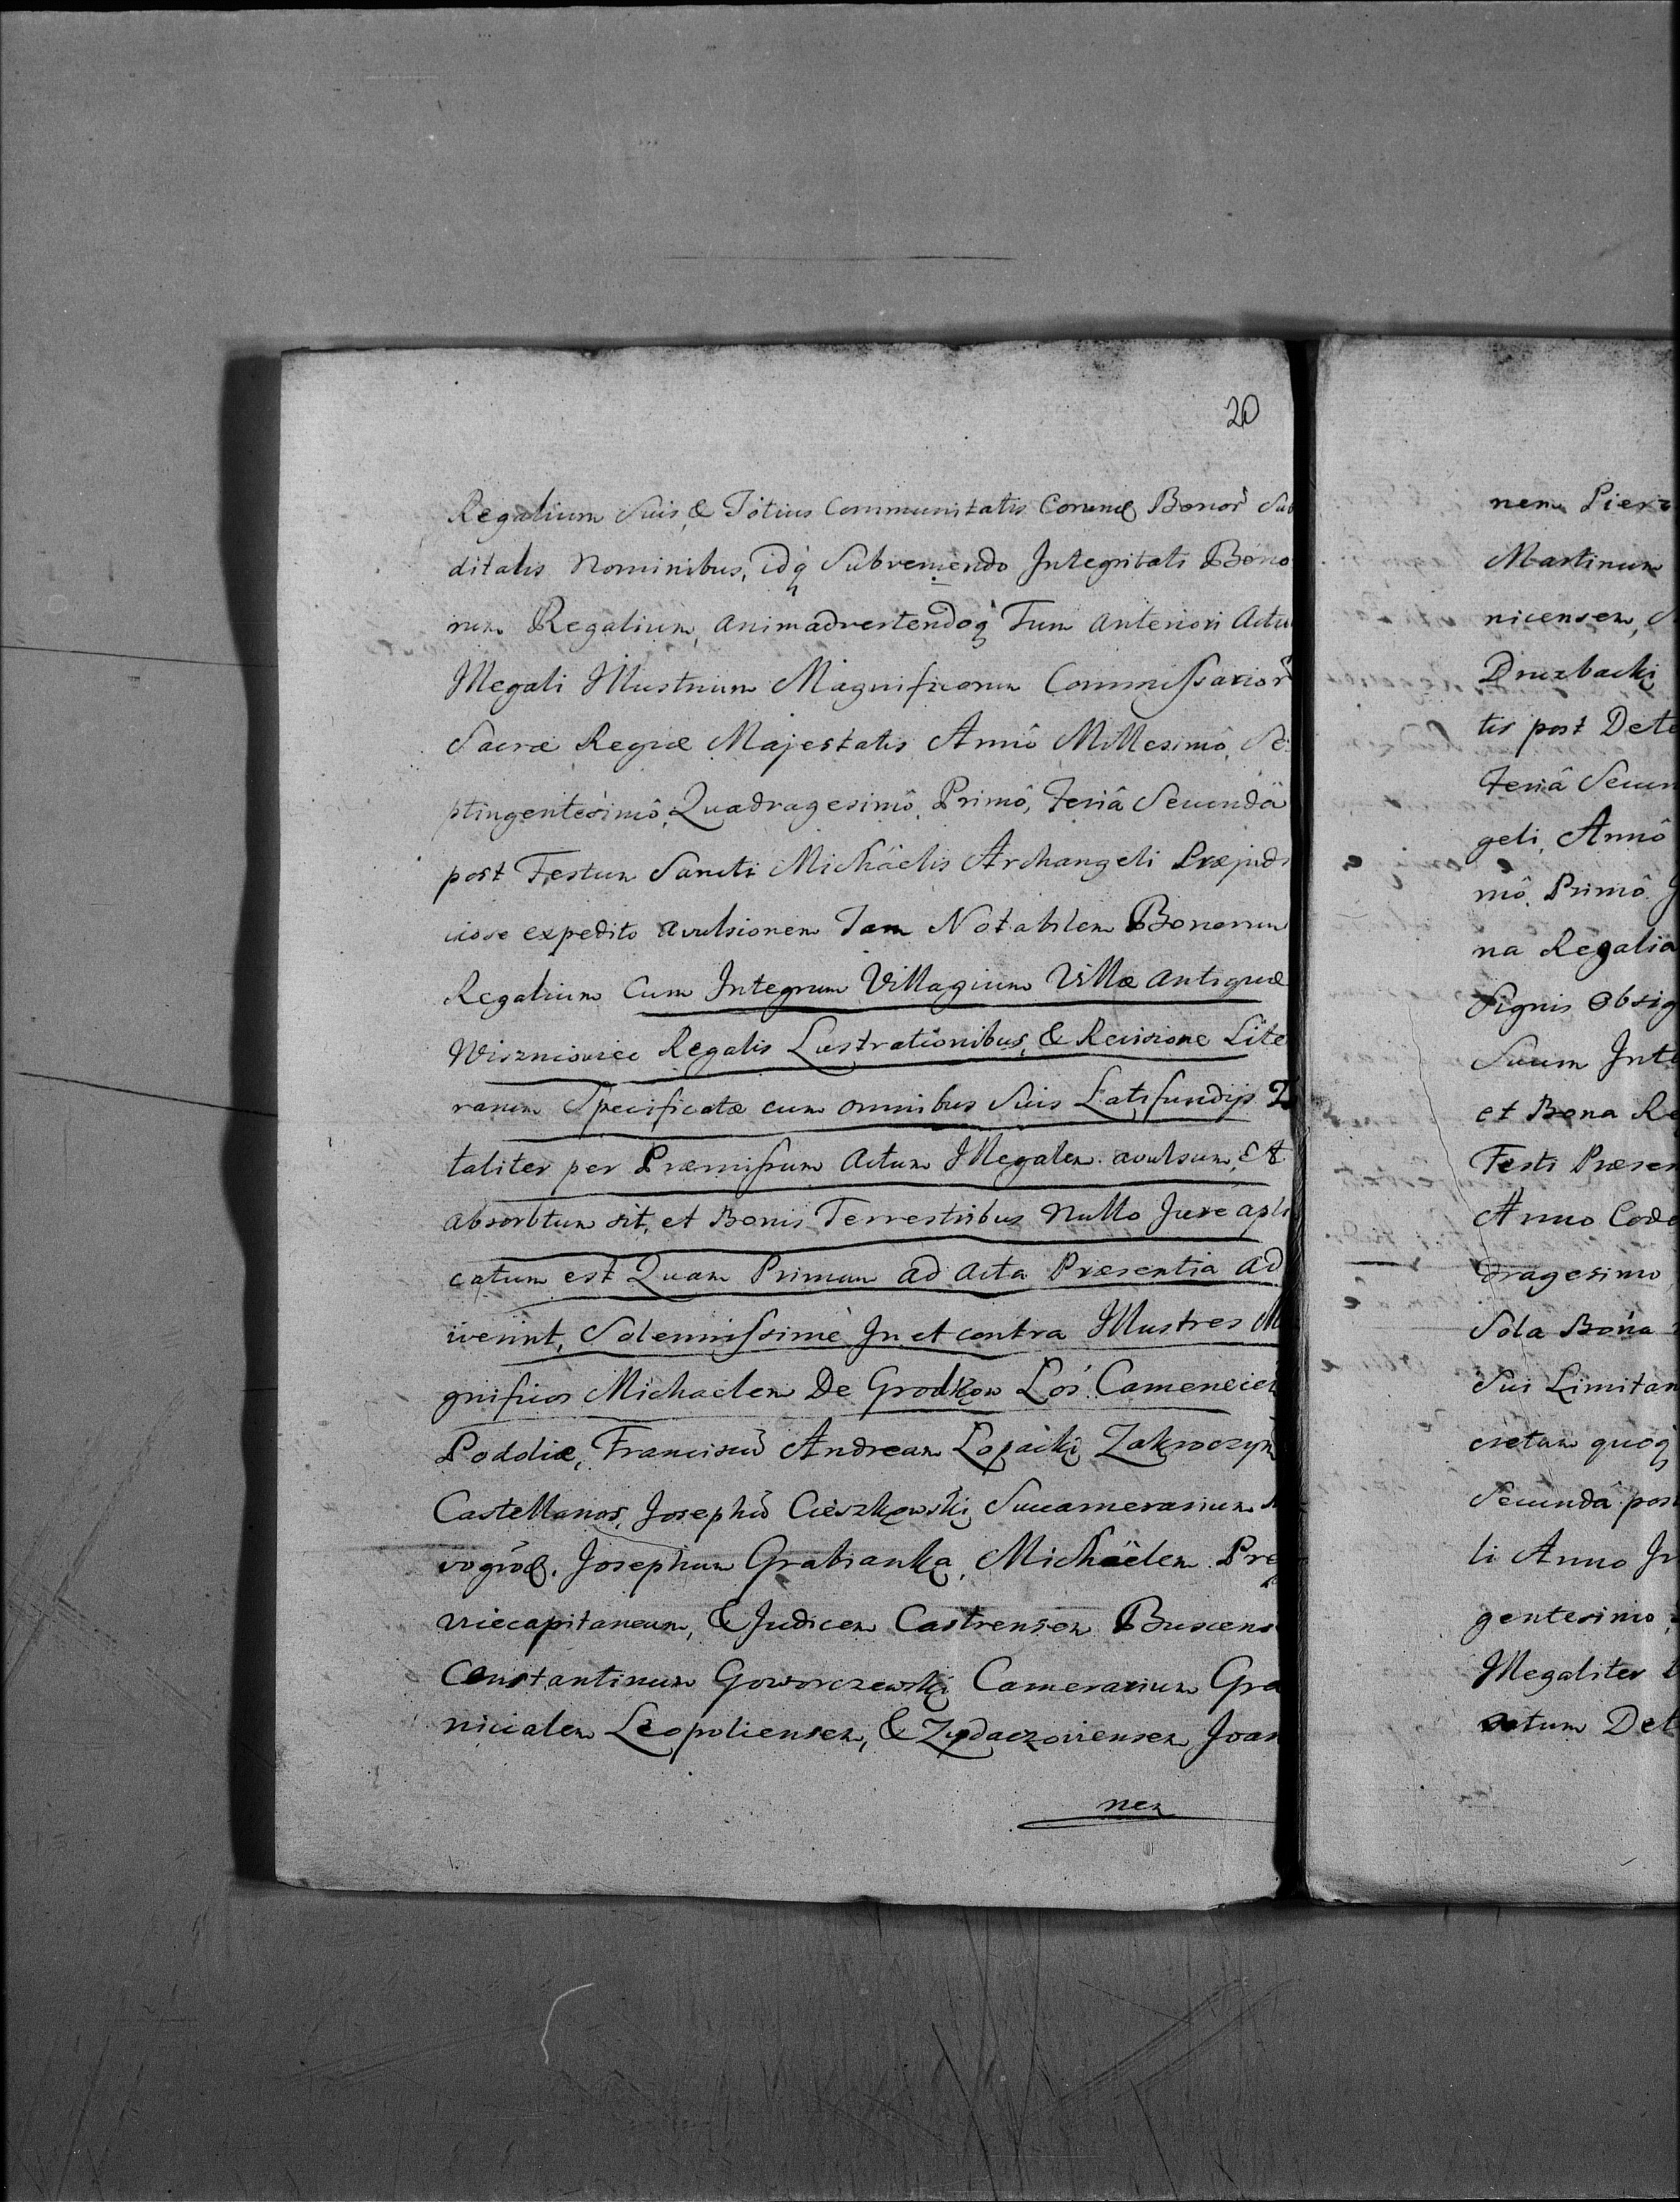 20
Regalium Suis, & Totius Communitatis Bonor̃ Sub
ditalis Nominibus, idq̀ Subveniendo Integritati Bono
rum Regalium, animadvertendoq̀ Tum anteriori Actu
Illegali Illustrium Magnificorum Commissarior̃
Sacræ Regiæ Majestatis Annô Millesimô, Se
ptingentesimô, Quadragesimô, Primô, Feriâ Secundâ
post Festum Sancti Michäelis Archangeli Præjudi
ciose expedito avulsionem Tam Notabilem Bonorum
Regalium Cum Integrum Villagium Villæ antiquæ
Wiszniowiec Regalis Lustrationibus, & Revisione Lite
rarum Specificatæ cum omnibus Suis Latifundijs To
taliter per Præmissum Actum Illegalem avulsum, Et
absorbtum sit, et Bonis Terrestribus Nullo Jure apli
catum est Quam Primum ad Acta Præsentia ad
iverint, Solennissimè In et contra Illustres Ma
gnificos Michaelem De Grodkow Łoś Camenecień
Podoliæ, Franciscũ Andream Łopacki Zakroczyń
Castellanos, Josephũ Cieszkowski Succamerarium
Josephum Grabianka, Michäelem
vicecapitaneum, & Judicem Castrensem Buscens
Constantinum Goworczewski Camerarium Gra
nicialem Leopoliensem, & Zydaczoviensem Joan
nem
nem Pierz
Martinum
nicensem, S
Druzbacki
tis post Dete
Feriâ Secun
geli, Annô
mô, Primô J
na Regalia
Signis Obsig
Suum Inte
et Bona Re
Festi Præsen
Anno Eode
dragesimo
Sola Bona
Sui Limitan
cretum quoq̀
Secunda post
li Anno Jn
gentesimo
Illegaliter
Det